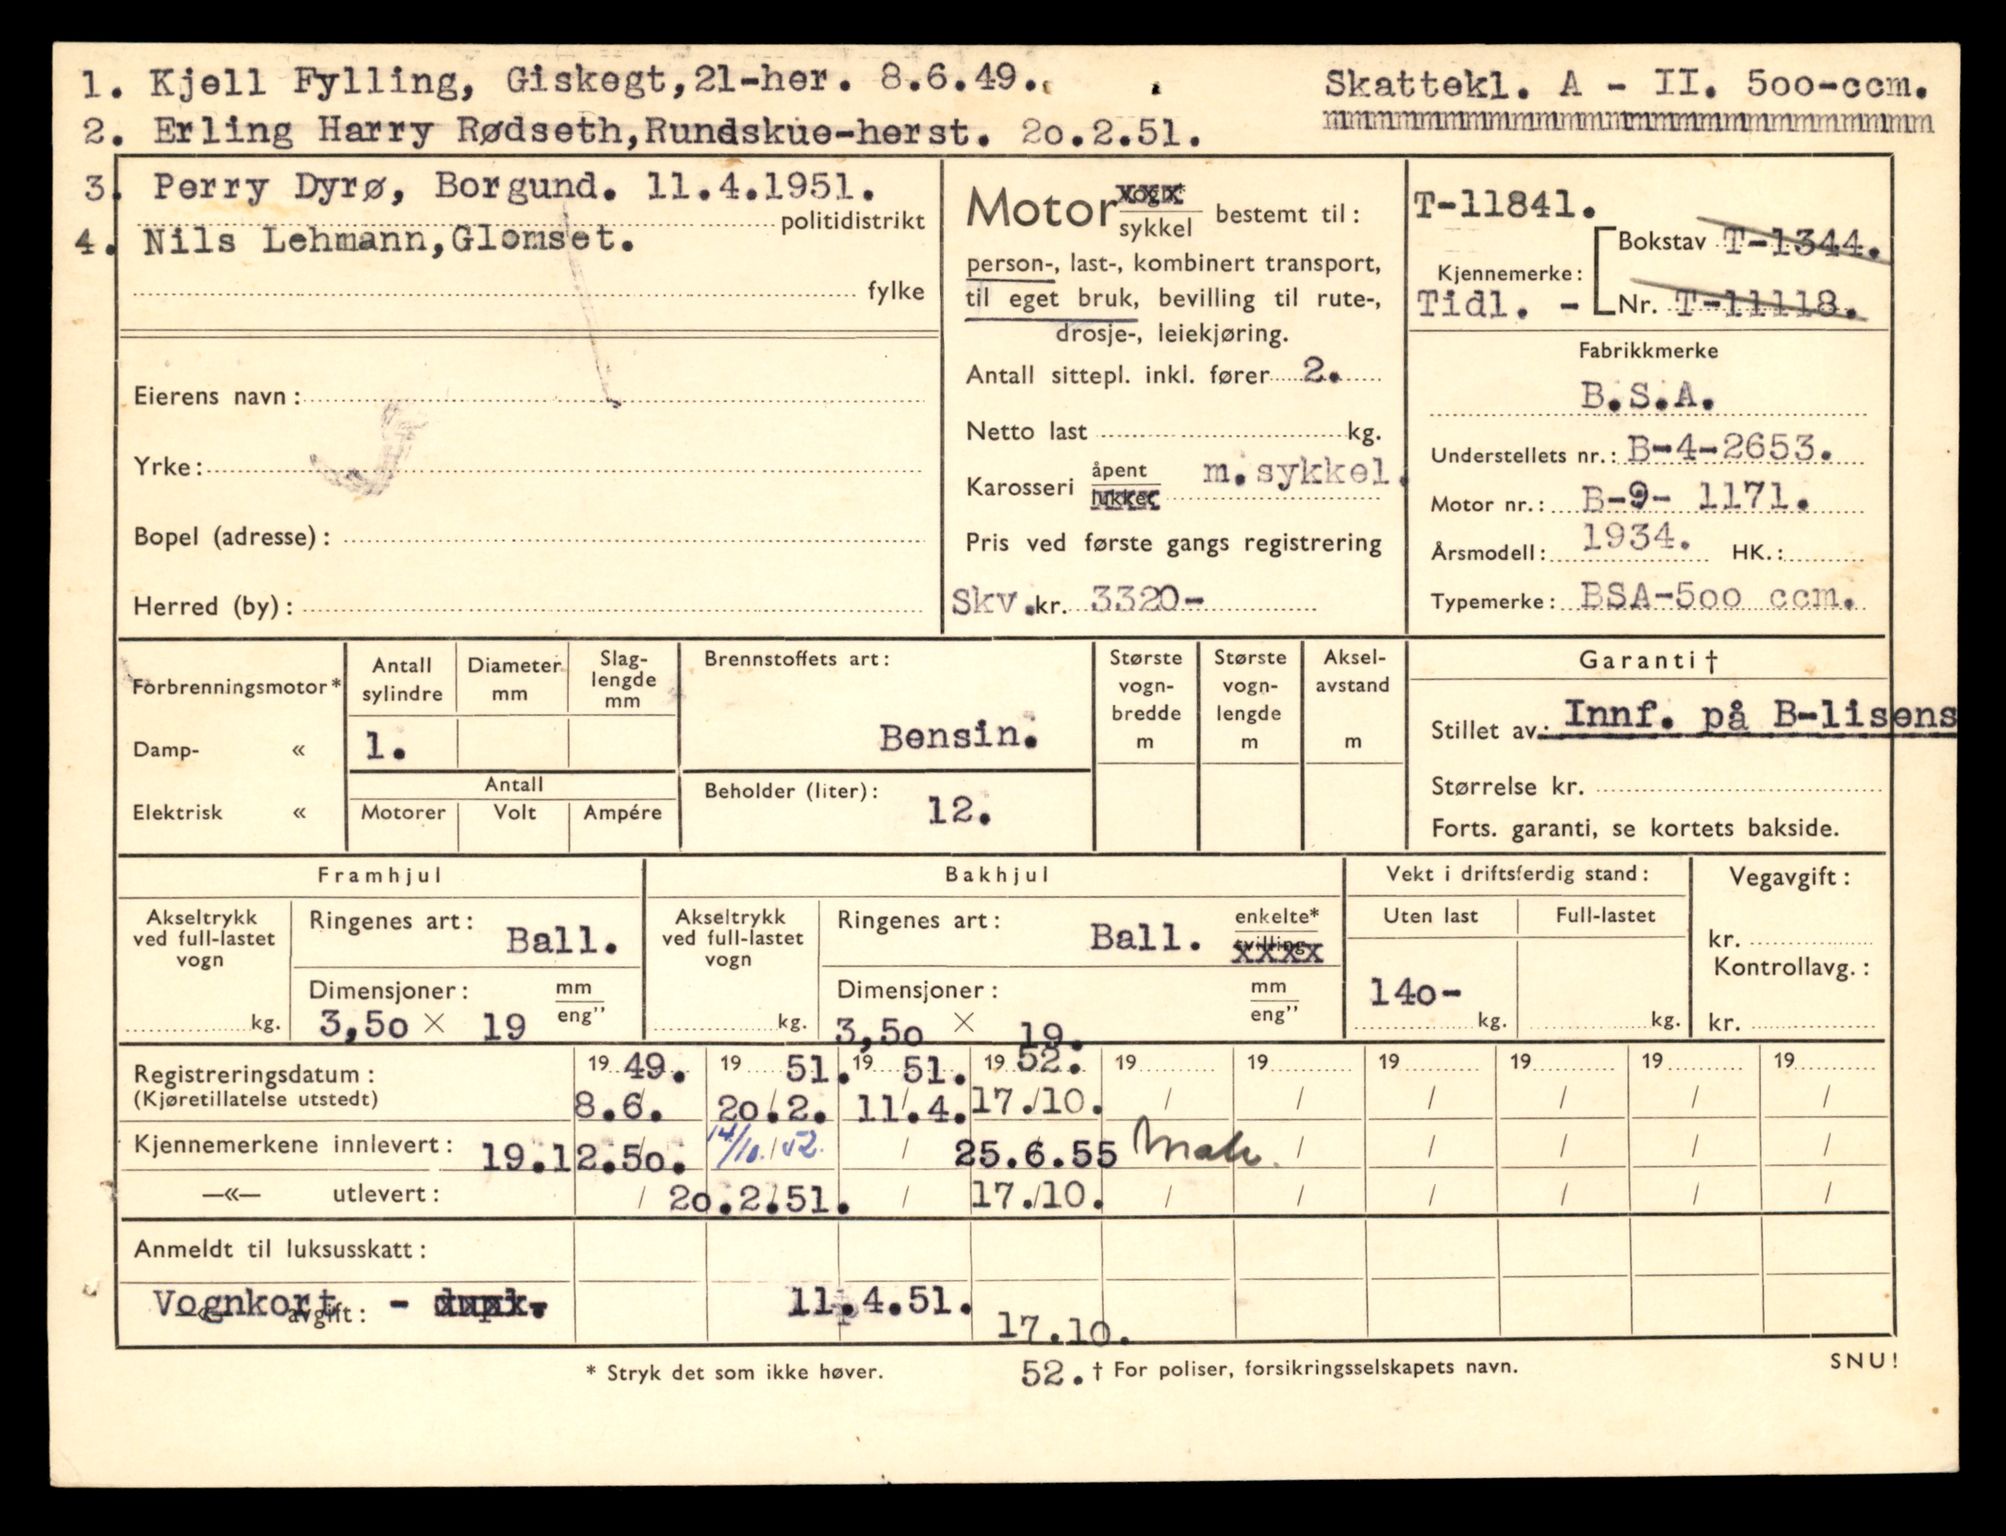 1. Kjell Fylling, Giskegt,21-her. 8.6.49.
Skattekl. A - II. 500-ccm.
mmmmmmmmmmmmmmmmmmmmmmmmmm
2. Erling Harry Rødseth,Rundskue-herst. 20.2.51.
3. Perry Dyrø, Borgund. 11.4.1951.
politidistrikt
4. Nils Lehmann,Glomset.
fylke
Eierens navn:
Yrke:
Bopel (adresse):
Herred (by):
Motor vogn* xxx
sykkel bestemt til:
person-, last-, kombinert transport,
til eget bruk, bevilling til rute-,
drosje-, leiekjøring.
Antall sittepl. inkl. fører 2.
Netto last kg.
Karosseri åpent m.sykkel.
lukket
Pris ved første gangs registrering
Skv.kr. 3320-
T-11841.
Bokstav T-1344.
Kjennemerke:
Tidl. - Nr. T-11118.
Fabrikkmerke
B.S.A.
Understellets nr.: B-4-2653.
Motor nr.: B-9- 1171.
Årsmodell: 1934. HK.:
Typemerke: BSA-500 ccm.
Forbrenningsmotor*
Damp- «
Elektrisk «
Antall sylindre
Diameter mm
Slag-lengde mm
1.
Antall
Motorer Volt Ampére
Brennstoffets art:
Bensin.
Beholder (liter):
12.
Største vogn-bredde m
Største vogn-lengde m
Aksel-avstand m
Garanti †
Stillet av: Innf. på B-lisens
Størrelse kr.
Forts. garanti, se kortets bakside.
Framhjul
Akseltrykk ved full-lastet vogn
kg.
Ringenes art:
Ball.
Dimensjoner: mm
eng"
3,50 × 19
Bakhjul
Akseltrykk ved full-lastet vogn
kg.
Ringenes art: enkelte*
Ball. tvilling xxxx
Dimensjoner: mm
eng"
3,50 × 19.
Vekt i driftsferdig stand:
Uten last Full-lastet
140-
kg. kg.
Vegavgift:
kr.
Kontrollavg.:
kr.
Registreringsdatum: 19 49. 19 51. 19 51. 19 52. 19 19 19 19 19 19
(Kjøretillatelse utstedt) 8./6. 20./2. 11./4. 17./10. / / / / / /
Kjennemerkene innlevert: 19.12.50. 14/10. / 52. / 25.6.55 / / / / /
—«— utlevert: / 20.2.51. / 17./10. / / / / / /
Anmeldt til luksusskatt:
Vognkort - dupl. 11.4.51.
—«— avgift:
17.10.
52.
* Stryk det som ikke høver.
† For poliser, forsikringsselskapets navn.
SNU!